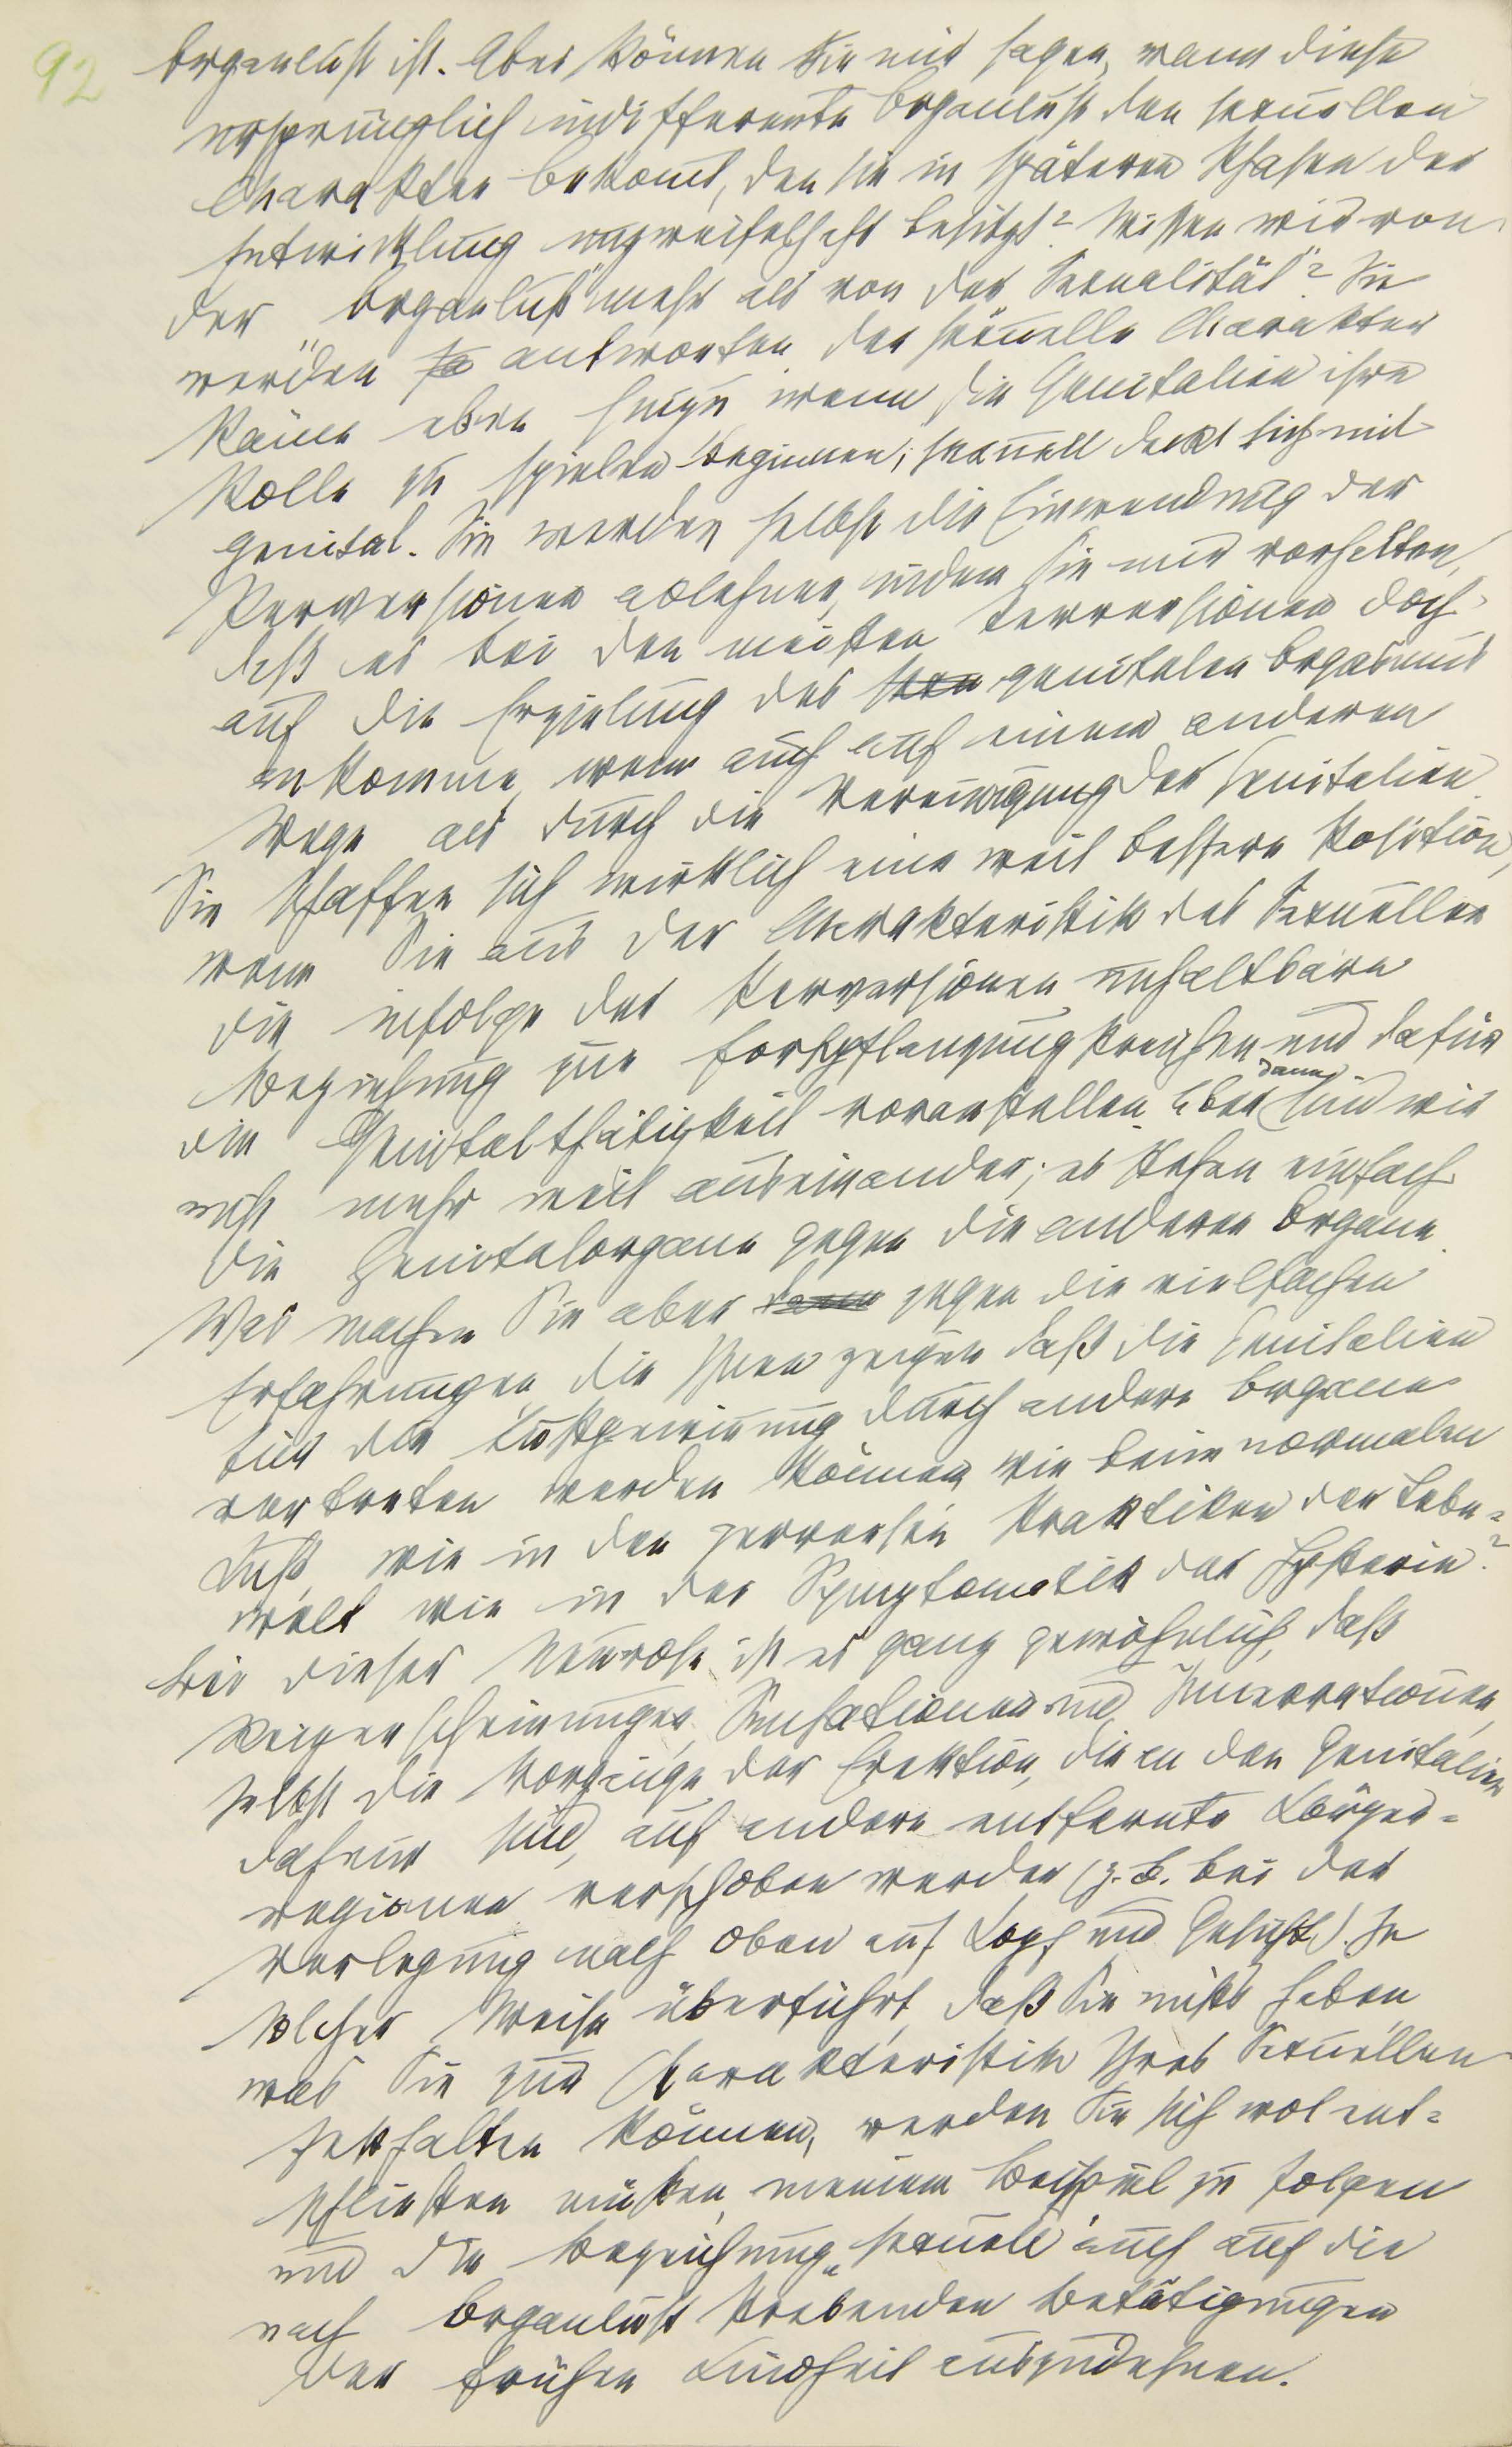 92
Organlust ist. Aber können Sie mir sagen, wann diese
ursprünglich indifferente Organlust den sexuellen
Charakter bekomt, den sie in späteren Phasen der
Entwicklung unzweifelhaft besitzt? Wissen wir von
der „Organlust“ mehr als von der Sexualität“? Sie
werden antworten der sexuelle Charakter
käme eben hinzu wenn die Genitalien ihre
Rolle zu spielen beginnen; sexuell deckt sich mit
genital. Sie werden selbst die Einwendung der
Perversionen ablehnen, indem Sie mir vorhalten,
daß es bei den meisten Perversionen doch
auf die Erzielung des genitalen Orgasmus
ankomme, wenn auch auf einem anderen
Wege als durch die Vereinigung der Genitalien.
Sie schaffen sich wirklich eine weit bessere Position,
wenn Sie aus der Charakteristik des Sexuellen
die infolge der Perversionen unhaltbare
Beziehung zur Fortpflanzung streichen und dafür
die Genitalthätigkeit voranstellen. Aber dann sind wir
nicht mehr weit auseinander; es stehen einfach
die Genitalorgane gegen die anderen Organe.
Was machen Sie aber gegen die vielfachen
Erfahrungen, die Ihnen zeigen daß die Genitalien
für die Lustgewinnung durch andere Organe
vertreten werden können, wie beim normalen
Kuß, wie in den perversen Praktiken der Lebe=
welt wie in der Symptomatik der Hysterie?
Bei dieser Neurose ist es ganz gewöhnlich, daß
Reizerscheinungen, Sensationen und Innervationen,
selbst die Vorgänge der Erektion, die an den Genitalien
daheim sind, auf andere entfernte Körper=
regionen verschoben werden (z. B. bei der
Verlegung nach oben auf Kopf und Gesicht). In
solcher Weise überführt, daß Sie nichts haben
was Sie zur Charakteristik Ihres Sexuellen
festhalten können, werden Sie sich wol ent=
schließen müßen, meinem Beispiel zu folgen
und die Bezeichnung „sexuell“ auch auf die
nach Organlust strebenden Betätigungen
der frühen Kindheit auszudehnen.